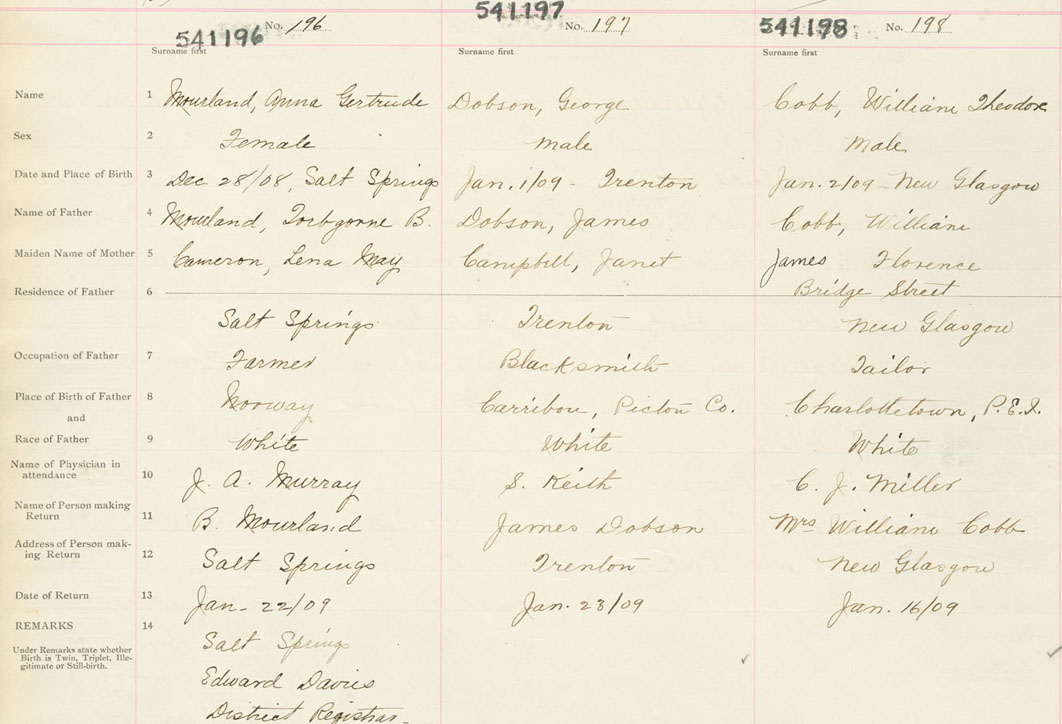 541196 No. 196 541197 No. 197 541198 No. 198
Surname first Surname first Surname first
Name 1 Mourland, Anna Gertrude Dobson, George Cobb, William Theodore
Sex 2 Female Male Male
Date and Place of Birth 3 Dec 28/08, Salt Springs Jan. 1/09 - Trenton Jan. 2/09 - New Glasgow
Name of Father 4 Mourland, Torbgorne B. Dobson, James Cobb, William
Maiden Name of Mother 5 Cameron, Lena May Campbell, Janet James Florence
Residence of Father 6 Bridge Street
Salt Springs Trenton New Glasgow
Occupation of Father 7 Farmer Blacksmith Tailor
Place of Birth of Father 8 Norway Carribou, Pictou Co. Charlottetown, P.E.I.
and
Race of Father 9 White White White
Name of Physician in
attendance 10 J. A. Murray S. Keith C. J. Miller
Name of Person making
Return 11 B. Mourland James Dobson Mrs William Cobb
Address of Person mak-
ing Return 12 Salt Springs Trenton New Glasgow
Date of Return 13 Jan - 22/09 Jan. 23/09 Jan. 16/09
REMARKS 14 Salt Springs
Under Remarks state whether
Birth is Twin, Triplet, Ille-
gitimate or Still-birth.
Edward Davis
District Registrar